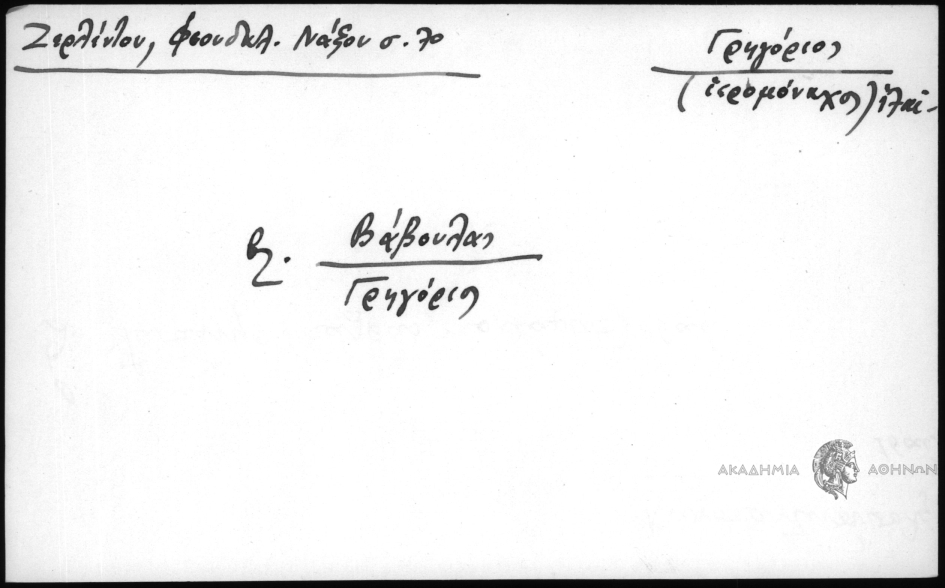 Ζερλέντου, Φεουδαλ. Νάξου σ. 70
Γρηγόριος
(ιερομόναχος)
βλ. Βάβουλας
Γρηγόριος
ΑΚΑΔΗΜΙΑ ΑΘΗΝΩΝ